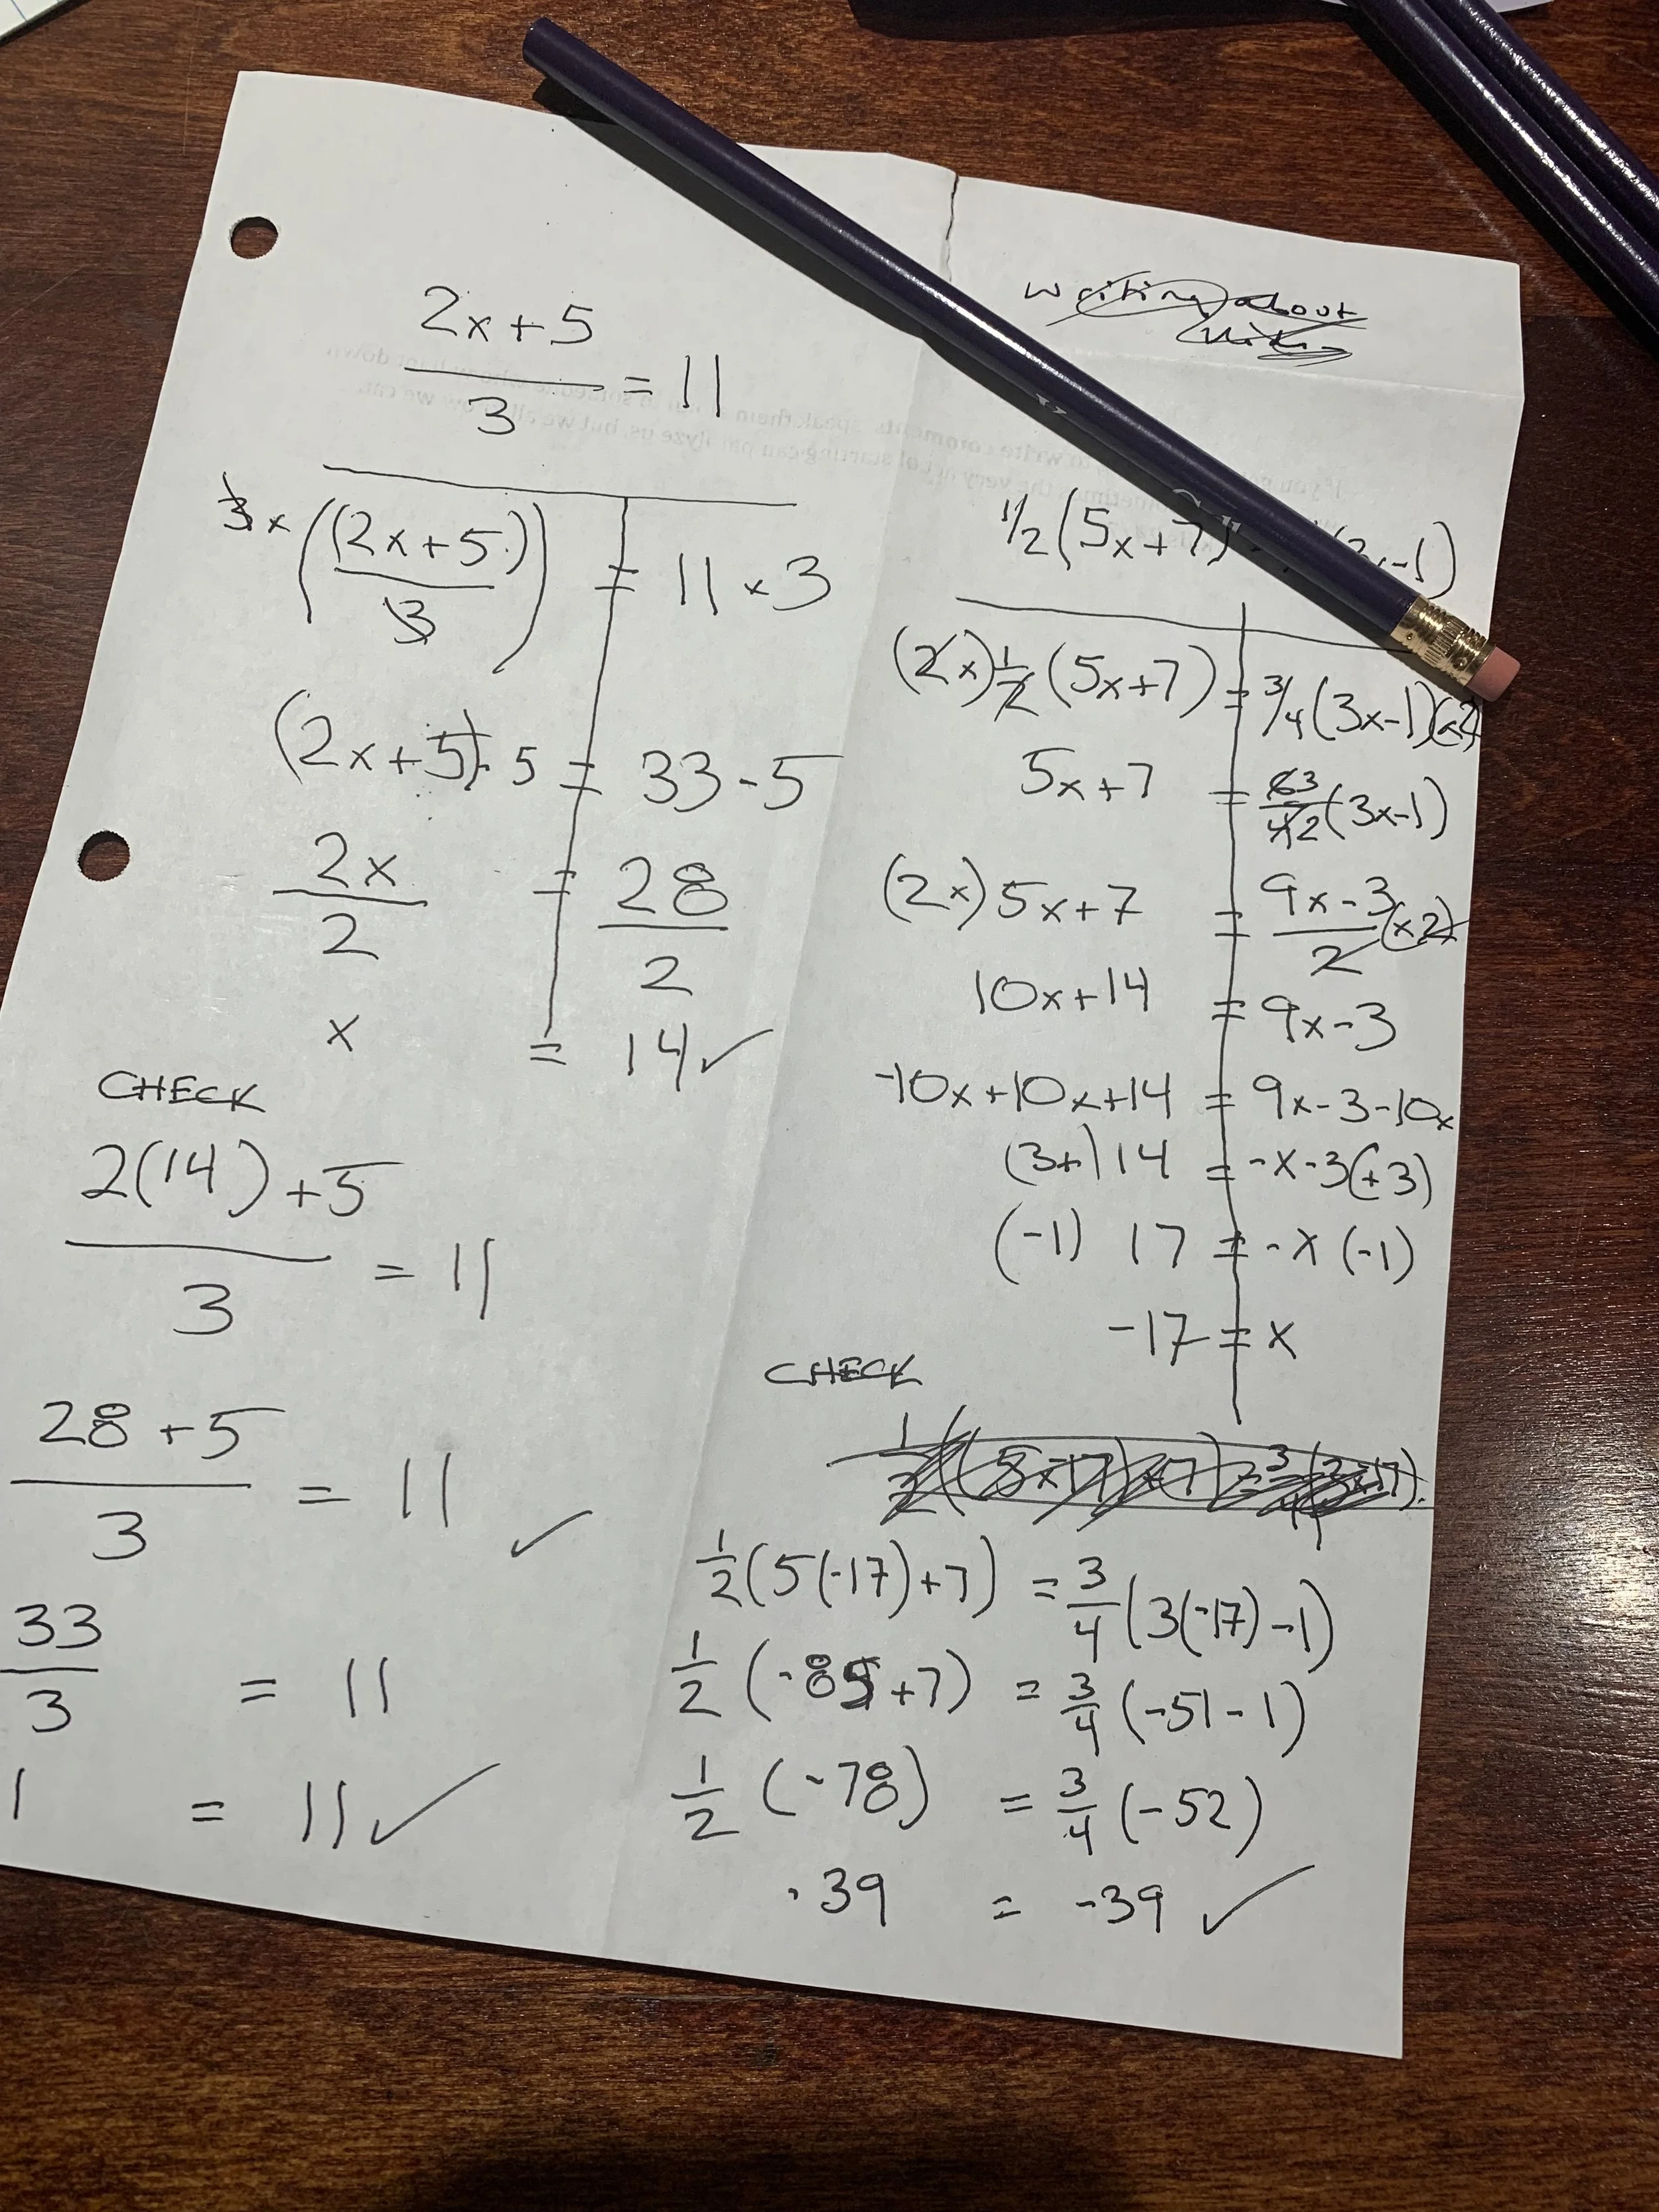 2x+5
3
= 11
3x ((2x+5)
3) = 11 × 3
(2x+5)- 5 = 33 - 5
2x
2
= 28
2
x = 14 ✓
CHECK
2(14) +5
3
= 11
28 +5
3
= 11 ✓
33
3
= 11
1 = 11 ✓
Writing about
1/2 (5x+7)
-1)
(2x) 1/2 (5x+7) = 3/4 (3x-1)(×2)
5x+7 = 63
42
(3x-1)
(2x) 5x+7 = 9x-3
2
(×2)
10x+14 = 9x-3
-10x+10x+14 = 9x-3-10x
(3+) 14 = -x-3(+3)
(-1) 17 = -x (-1)
-17 = x
CHECK
1/2 (5(-17)+7) = 3/4 (3(-17)-1)
1/2 (-85+7) = 3/4 (-51-1)
1/2 (-78) = 3/4 (-52)
-39 = -39 ✓